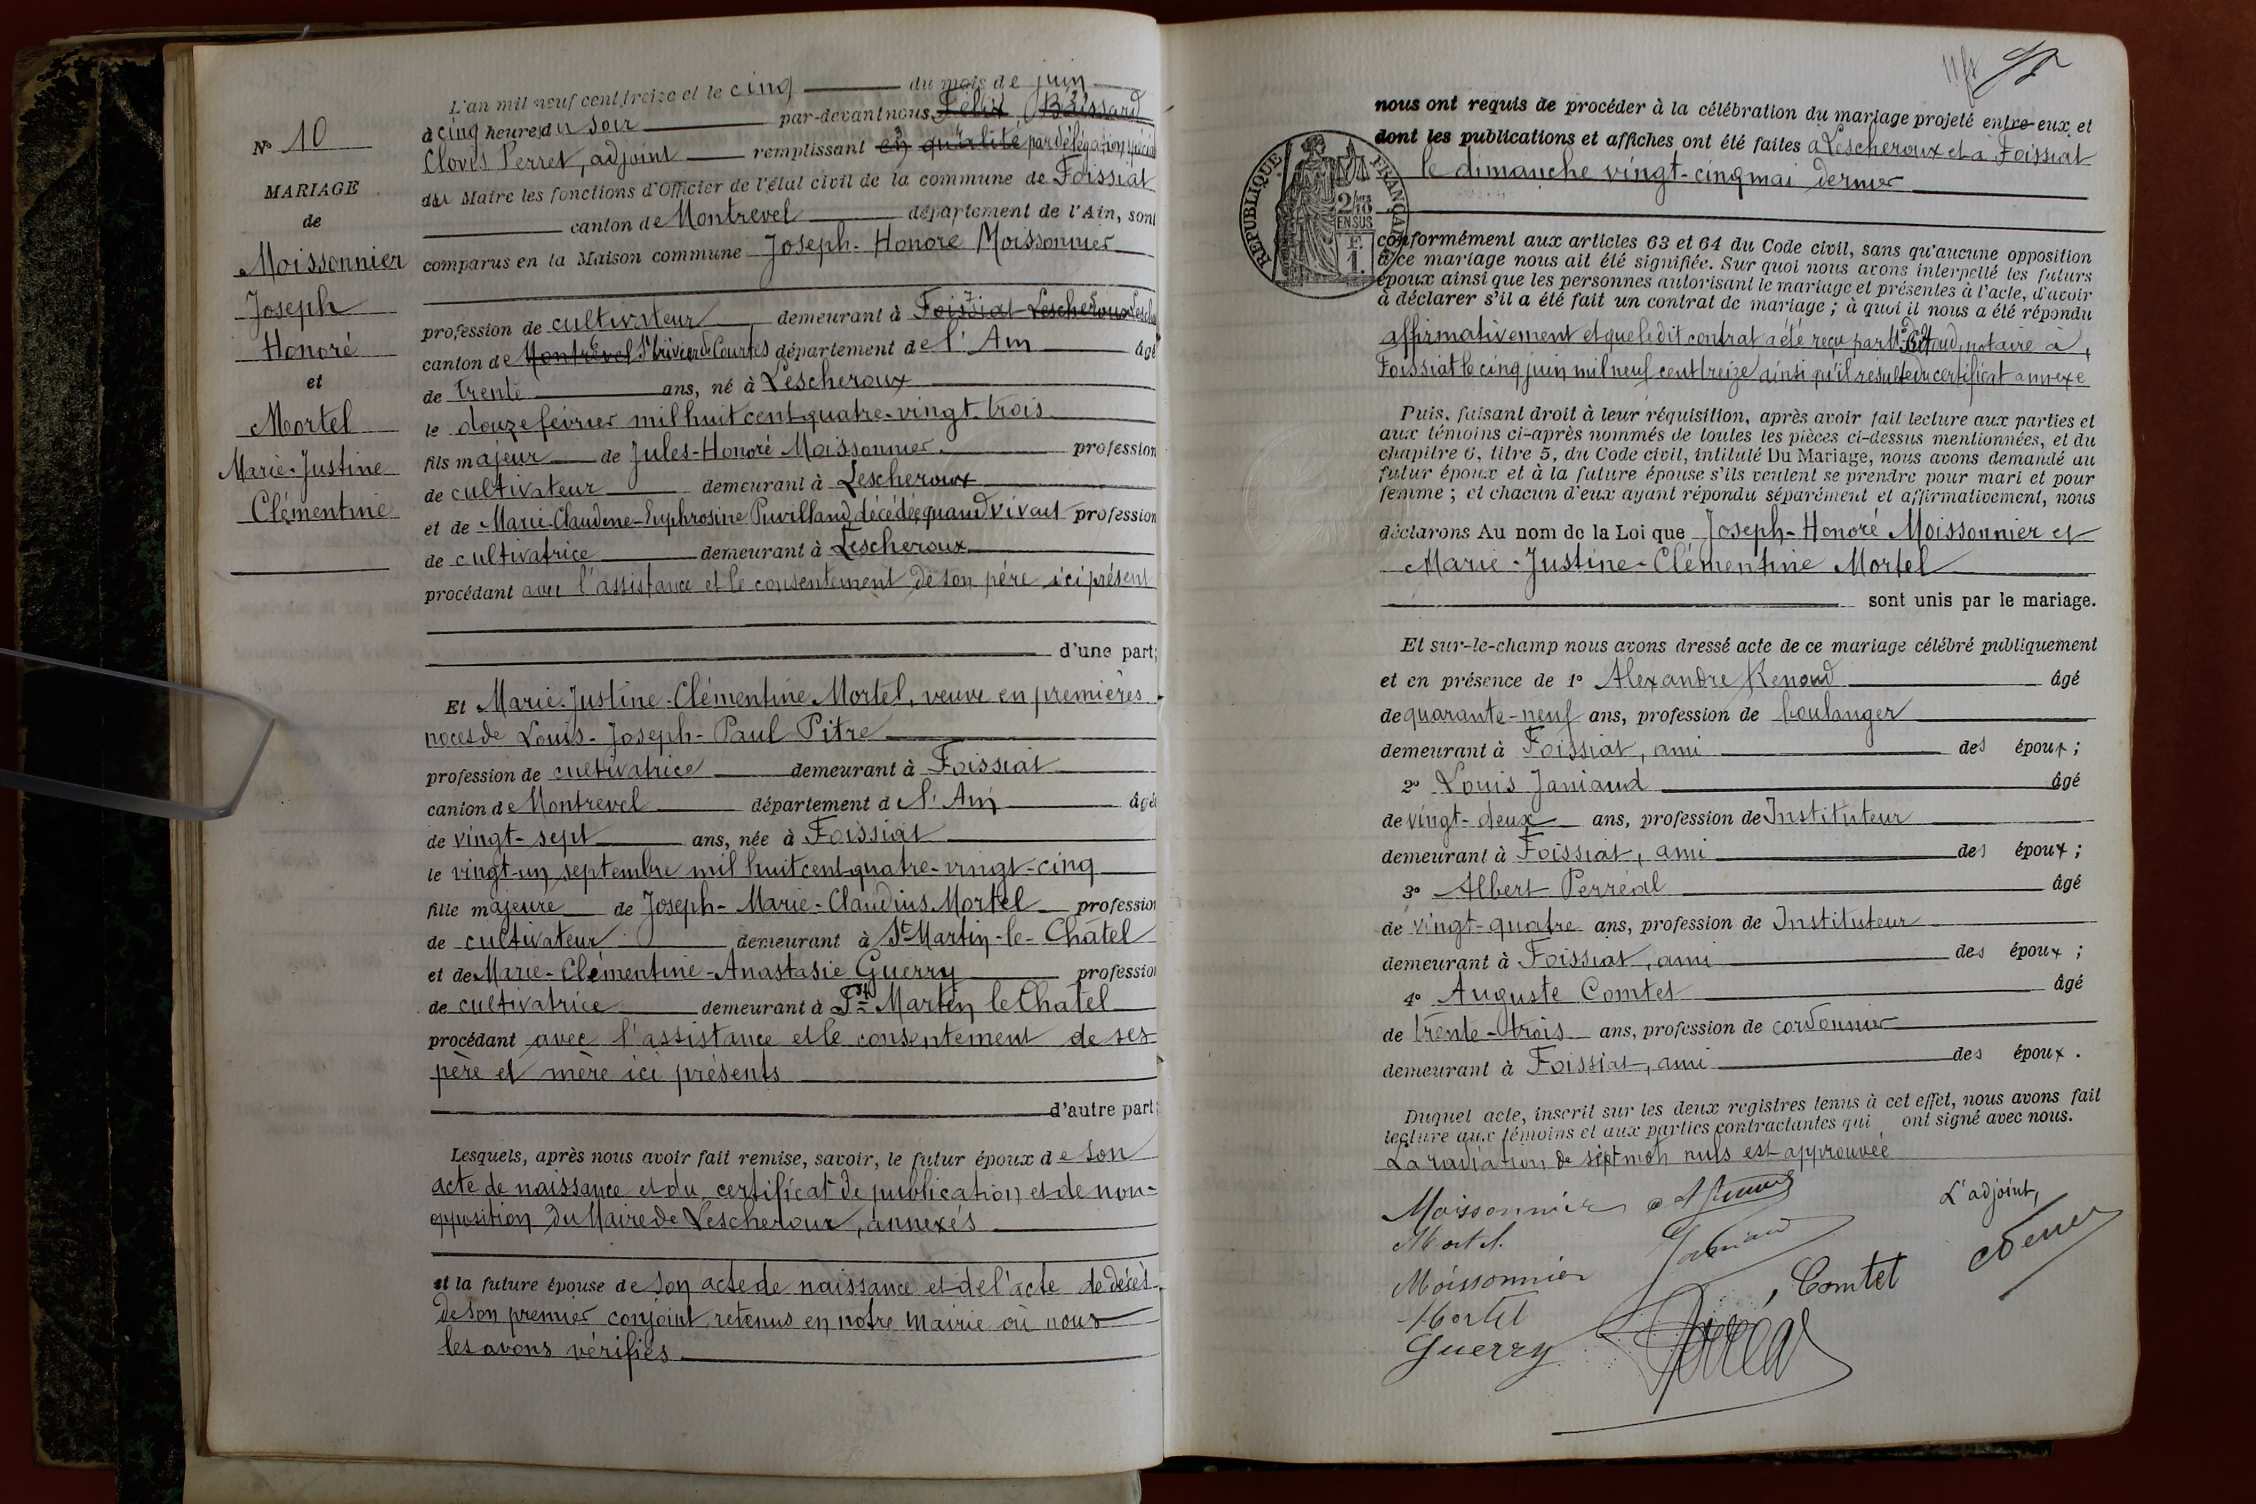 L'an mil neuf cent treize et le cinq du mois de juin
à cinq heures du soir par-devant nous Félix Brissard
Clovis Perret, adjoint remplissant en qualité par délégation spéciale
du Maire les fonctions d'Officier de l'état civil de la commune de Foissiat
canton de Montrevel département de l'Ain, sont
comparus en la Maison commune Joseph-Honoré Moissonnier
profession de cultivateur demeurant à Foissiat Lescheroux
canton de Montrevel St Trivier de Courtes département de l'Ain âgé
de trente ans, né à Lescheroux
le douze février mil huit cent quatre-vingt-trois
fils majeur de Jules-Honoré Moissonnier profession
de cultivateur demeurant à Lescheroux
et de Marie-Claudene-Euphrosine Puvilland décédée quand vivait profession
de cultivatrice demeurant à Lescheroux
procédant avec l'assistance et le consentement de son père ici présent
d'une part;
Et Marie-Justine-Clémentine Mortel, veuve en premières
noces de Louis-Joseph-Paul Pitre
profession de cultivatrice demeurant à Foissiat
canton de Montrevel département de l'Ain âgée
de vingt-sept ans, née à Foissiat
le vingt-un septembre mil huit cent quatre-vingt-cinq
fille majeure de Joseph-Marie-Claudius Mortel profession
de cultivateur demeurant à St Martin-le-Châtel
et de Marie-Clémentine-Anastasie Guerry profession
de cultivatrice demeurant à St Martin le Chatel
procédant avec l'assistance et le consentement de ses
père et mère ici présents
d'autre part;
Lesquels, après nous avoir fait remise, savoir, le futur époux de son
acte de naissance et du certificat de publication et de non-
opposition du Maire de Lescheroux, annexés
et la future épouse de son acte de naissance et de l'acte de décès
de son premier conjoint retenus en notre mairie où nous
les avons vérifiés
N° 10
MARIAGE
de
Moissonnier
Joseph
Honoré
et
Mortel
Marie-Justine
Clémentine
nous ont requis de procéder à la célébration du mariage projeté entre eux et
dont les publications et affiches ont été faites à Lescheroux et à Foissiat
le dimanche vingt-cinq mai dernier
RÉPUBLIQUE FRANÇAISE
2/10
EN SUS
F.
1.
conformément aux articles 63 et 64 du Code civil, sans qu'aucune opposition
à ce mariage nous ait été signifiée. Sur quoi nous avons interpellé les futurs
époux ainsi que les personnes autorisant le mariage et présentes à l'acte, d'avoir
à déclarer s'il a été fait un contrat de mariage ; à quoi il nous a été répondu
affirmativement et que ledit contrat a été reçu par notaire à
Foissiat le cinq juin mil neuf cent treize ainsi qu'il résulte du certificat annexé
Puis, faisant droit à leur réquisition, après avoir fait lecture aux parties et
aux témoins ci-après nommés de toutes les pièces ci-dessus mentionnées, et du
chapitre 6, titre 5, du Code civil, intitulé Du Mariage, nous avons demandé au
futur époux et à la future épouse s'ils veulent se prendre pour mari et pour
femme ; et chacun d'eux ayant répondu séparément et affirmativement, nous
déclarons Au nom de la Loi que Joseph-Honoré Moissonnier et
Marie-Justine-Clémentine Mortel
sont unis par le mariage.
Et sur-le-champ nous avons dressé acte de ce mariage célébré publiquement
et en présence de 1° Alexandre Renoud âgé
de quarante-neuf ans, profession de boulanger
demeurant à Foissiat, ami des époux ;
2° Louis Janiaud âgé
de vingt-deux ans, profession de Instituteur
demeurant à Foissiat, ami des époux ;
3° Albert Perréal âgé
de vingt-quatre ans, profession de Instituteur
demeurant à Foissiat, ami des époux ;
4° Auguste Comtet âgé
de trente-trois ans, profession de cordonnier
demeurant à Foissiat, ami des époux.
Duquel acte, inscrit sur les deux registres tenus à cet effet, nous avons fait
lecture aux témoins et aux parties contractantes qui ont signé avec nous.
La radiation de sept mots nuls est approuvée
Moissonnier
Mortel.
Janiaud
L'adjoint,
Moissonnier
Comtet
Mortel
Guerry
Perréal